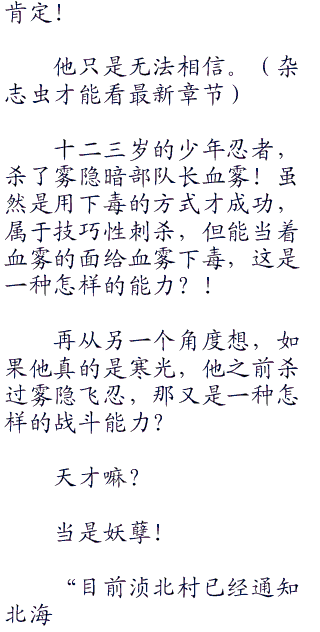 肯定！
他只是无法相信。（杂
志虫才能看最新章节）
十二三岁的少年忍者，
杀了雾隐暗部队长血雾！虽
然是用下毒的方式才成功，
属于技巧性刺杀，但能当着
血雾的面给血雾下毒，这是
一种怎样的能力？！
再从另一个角度想，如
果他真的是寒光，他之前杀
过雾隐飞忍，那又是一种怎
样的战斗能力？
天才嘛？
当是妖孽！
“目前浈北村已经通知
北海